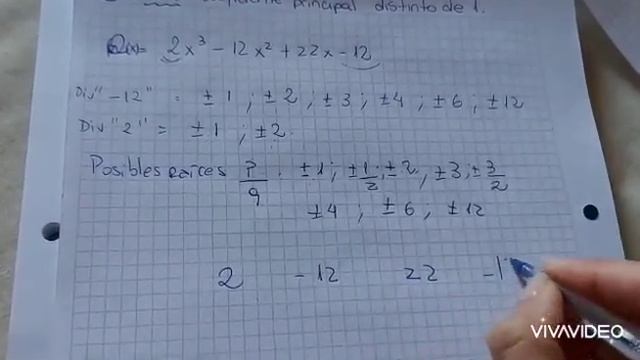 principal distinto de 1.
Q(x)= 2x³ - 12x² + 22x - 12
Div "-12" = ±1 ; ±2 ; ±3 ; ±4 ; ±6 ; ±12
Div "2" = ±1 ; ±2.
Posibles raíces P/q : ±1 ; ±1/2 ; ±2 , ±3 ; ±3/2
±4 ; ±6 ; ±12
2 -12 22 -1
VIVAVIDEO